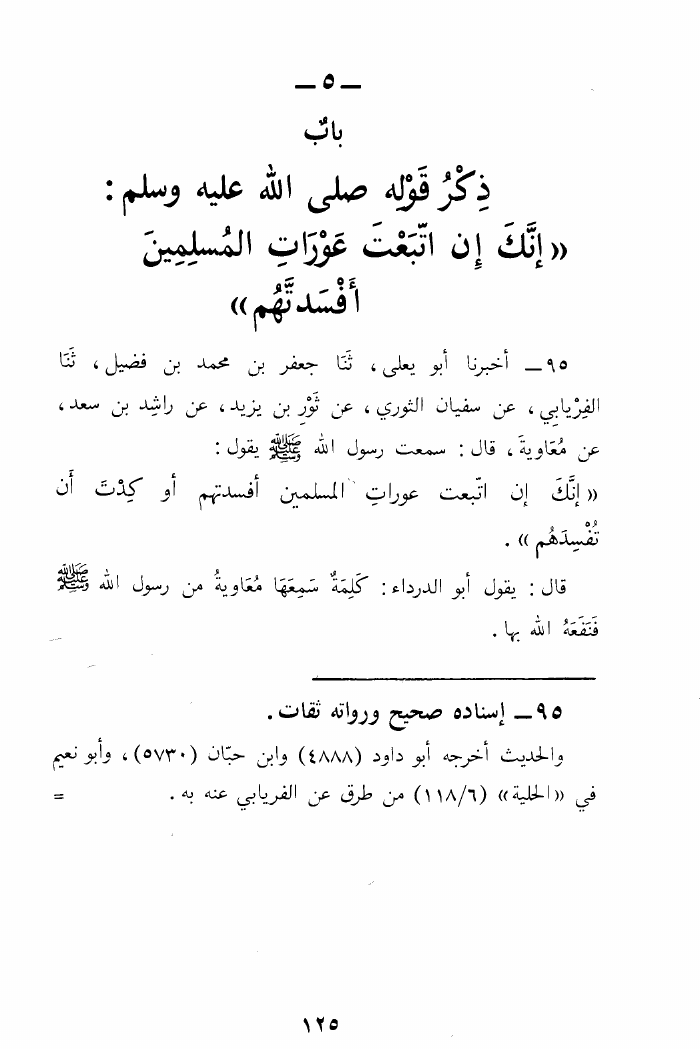 ـ ٥ ـ
بابٌ
ذِكْرُ قَوْلِه صلى الله عليه وسلم :
« إِنَّكَ إِن اتّبَعْتَ عَوْرَاتِ المُسلِمِينَ
أَفْسَدتَّهُم »
٩٥ ـ أخبرنا أبو يعلى، ثَنَا جعفر بن محمد بن فضيل، ثَنَا
الفِرْيابِي، عن سفيان الثوري، عن ثَوْرِ بن يزيد، عن راشِد بن سعد،
عن مُعَاويةَ، قال : سمعت رسول الله ﷺ يقول :
« إِنَّكَ إن اتّبعت عوراتِ المسلمين أفسدتهم أو كِدْتَ أَن
تُفْسِدَهُم » .
قال : يقول أبو الدرداء : كَلِمَةٌ سَمِعَهَا مُعَاويةُ من رسول الله ﷺ
فَنَفَعَهُ الله بها .
٩٥ ـ إسناده صحيح ورواته ثقات .
والحديث أخرجه أبو داود (٤٨٨٨) وابن حبّان (٥٧٣٠)، وأبو نعيم
في «الحلية» (١١٨/٦) من طرق عن الفريابي عنه به . =
١٢٥